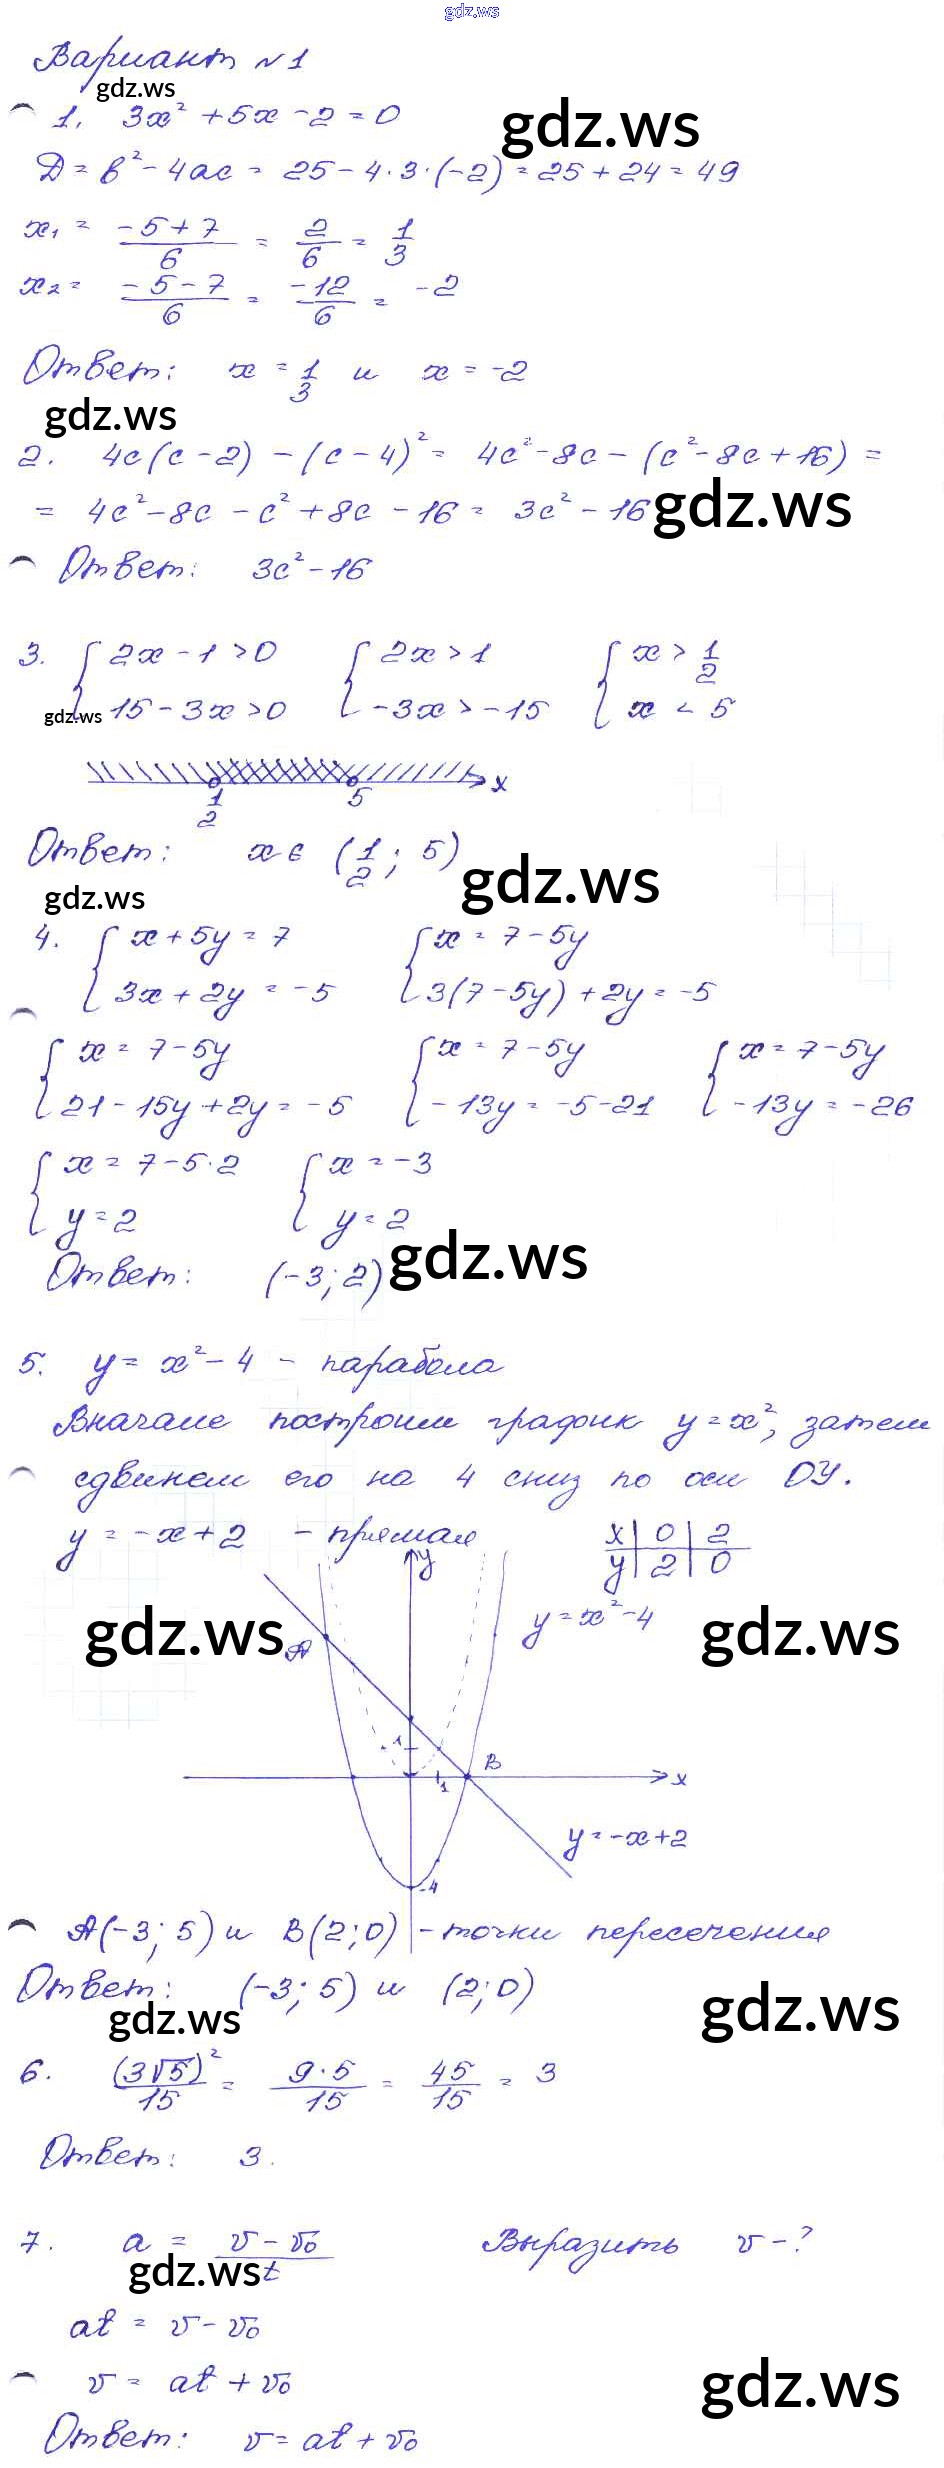 gdz.ws
Вариант №1
gdz.ws
1. 3x² + 5x - 2 = 0
gdz.ws
D = b² - 4ac = 25 - 4·3·(-2) = 25 + 24 = 49
x₁ = (-5+7)/6 = 2/6 = 1/3
x₂ = (-5-7)/6 = -12/6 = -2
Ответ: x = 1/3 и x = -2
gdz.ws
2. 4c(c-2) - (c-4)² = 4c² - 8c - (c² - 8c + 16) =
= 4c² - 8c - c² + 8c - 16 = 3c² - 16
gdz.ws
Ответ: 3c² - 16
3. { 2x - 1 > 0 { 2x > 1 { x > 1/2
15 - 3x > 0 -3x > -15 x < 5
gdz.ws
1/2 5 x
Ответ: x ∈ (1/2; 5)
gdz.ws
gdz.ws
4. { x + 5y = 7 { x = 7 - 5y
3x + 2y = -5 3(7-5y) + 2y = -5
{ x = 7 - 5y { x = 7 - 5y { x = 7 - 5y
21 - 15y + 2y = -5 -13y = -5 - 21 -13y = -26
{ x = 7 - 5·2 { x = -3
y = 2 y = 2
Ответ: (-3; 2)
gdz.ws
5. y = x² - 4 - парабола
Вначале построим график y = x², затем
сдвинем его на 4 сниз по оси ОУ.
y = -x + 2 - прямая
x | 0 | 2
y | 2 | 0
y
y = x² - 4
gdz.ws
A
gdz.ws
1
B
1
x
y = -x + 2
-4
A(-3; 5) и B(2; 0) - точки пересечения
Ответ: (-3; 5) и (2; 0)
gdz.ws
gdz.ws
6. (3√5)²/15 = 9·5/15 = 45/15 = 3
Ответ: 3.
7. a = (v - v₀)/t Выразить v - ?
gdz.ws
at = v - v₀
v = at + v₀
gdz.ws
Ответ: v = at + v₀